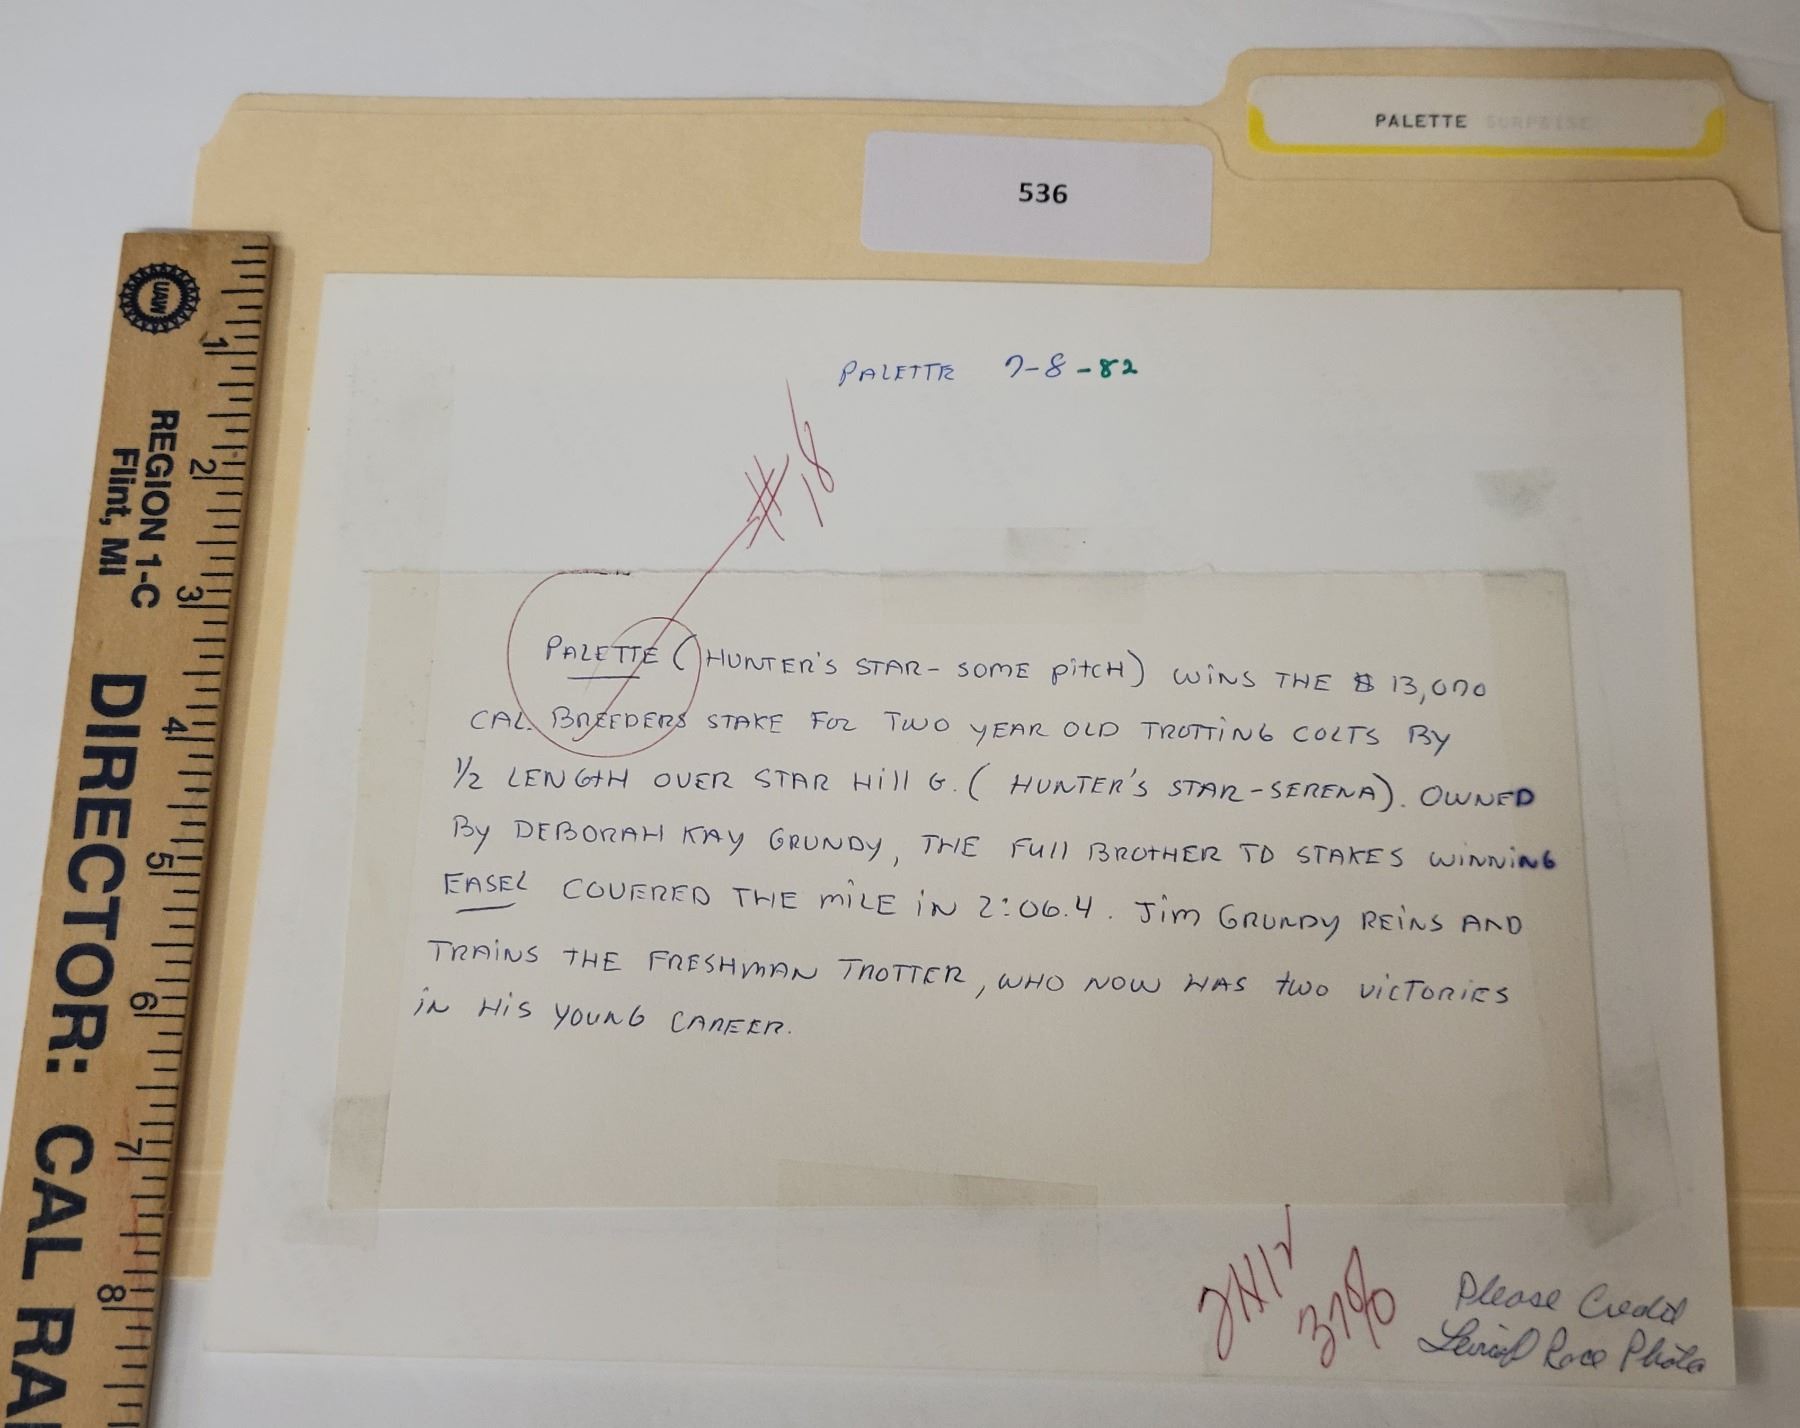 PALETTE SURPRISE
536
PALETTE 7-8-82
#18
PALETTE (HUNTER'S STAR- SOME PITCH) WINS THE $ 13,000
CAL. BREEDERS STAKE FOR TWO YEAR OLD TROTTING COLTS BY
1/2 LENGTH OVER STAR Hill G. ( HUNTER'S STAR-SERENA). OWNED
By DEBORAH KAY GRUNDY, THE FUll BROTHER TO STAKES WINNING
EASEL COVERED THE MILE IN 2:06.4. JIM GRUNDY REINS AND
TRAINS THE FRESHMAN TROTTER, WHO NOW HAS TWO VICTORIES
IN HIS YOUNG CAREER.
37%
Please Credit
Race Photo
UAW
REGION 1-C
Flint, MI
DIRECTOR: CAL RA
1 2 3 4 5 6 7 8